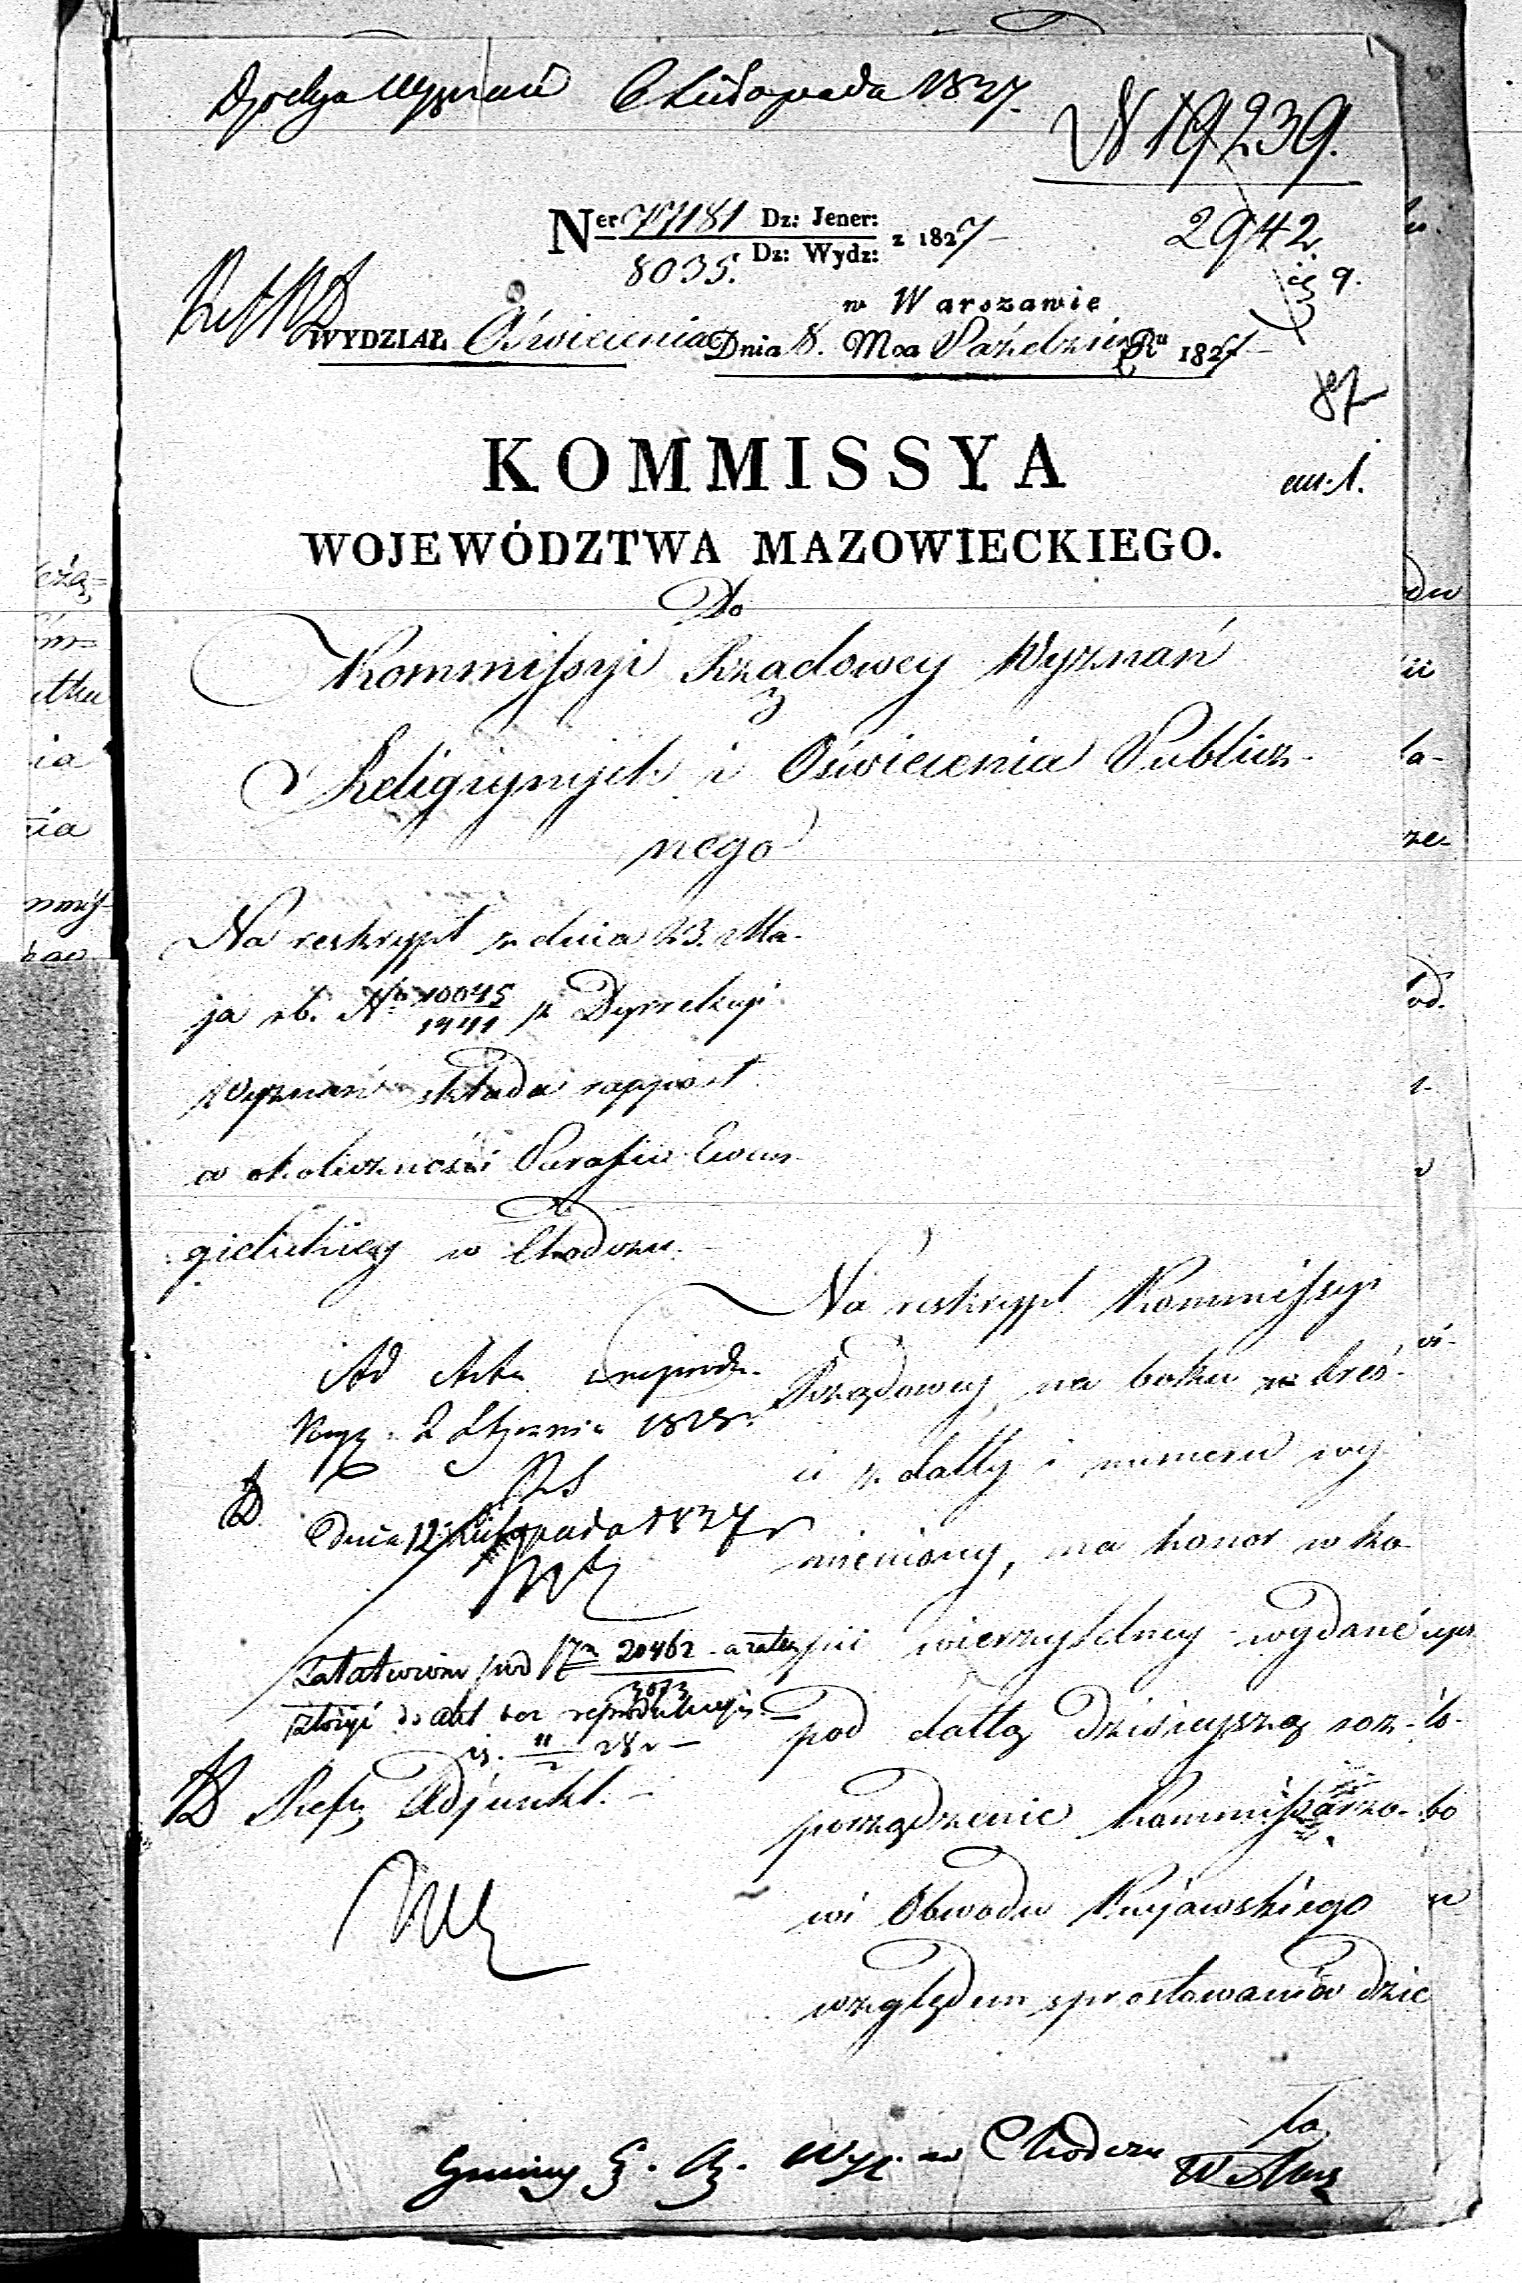 Dyrekcya Wyznań 6 Listopada 1827.
N 19239.
2942
Ner 77181 Dz: Jener: z 1827
8035. Dz: Wydz:
w Warszawie
WYDZIAŁ Oświecenia Dnia 8. Mca Paździer Ru 1827
87
KOMMISSYA
WOJEWÓDZTWA MAZOWIECKIEGO.
Do
Kommissyi Rządowey Wyznań
Religiynych i Oświecenia Publicz-
nego
Na reskrypt z dnia 23. Ma-
ja rb. Nr 10045/1441 z Dyrekcyi
Wyznań składa rapport
w okoliczności Parafii Ewan-
gielickiey w Chodczu.
Na reskrypt Kommissyi
Rządowey, na boku w treś-
ci z datty i numeru wy
mieniony, ma honor w ko-
pii wierzytelney wydane
pod dattą dzisieyszą roz-
porządzenie Kommissarzo-
wi Obwodu Kujawskiego
względem sprostowania dzie
ła
Ad Acta
2 Stycznia 1828
Dnia 12 Listopada 1827 r
Załatwiony pod Nr 20462
3073
złożyć do akt bez reprodukcyi
Adjunkt.
Gminy E. A. Wyz. w Chodczu